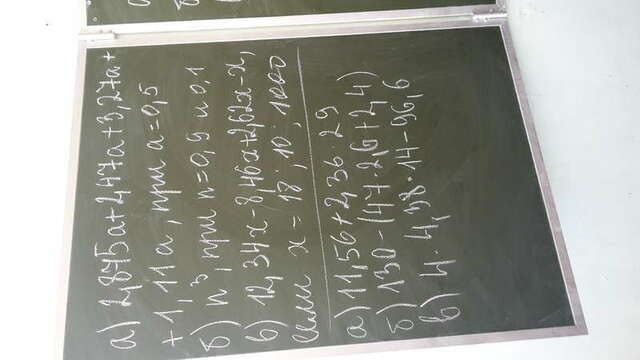 а) 2,845a+2,47a+3,27a+
+1,11a, при a=0,5
б) n³, при n=0,9 и 0,1
в) 12,34x-8,46x+2,62x-x,
если x=18; 10; 1000
а) 11,56+2,36·29
б) 130-(47·2,6+2,4)
в) 4·4,38·14-96,6
а)
б)